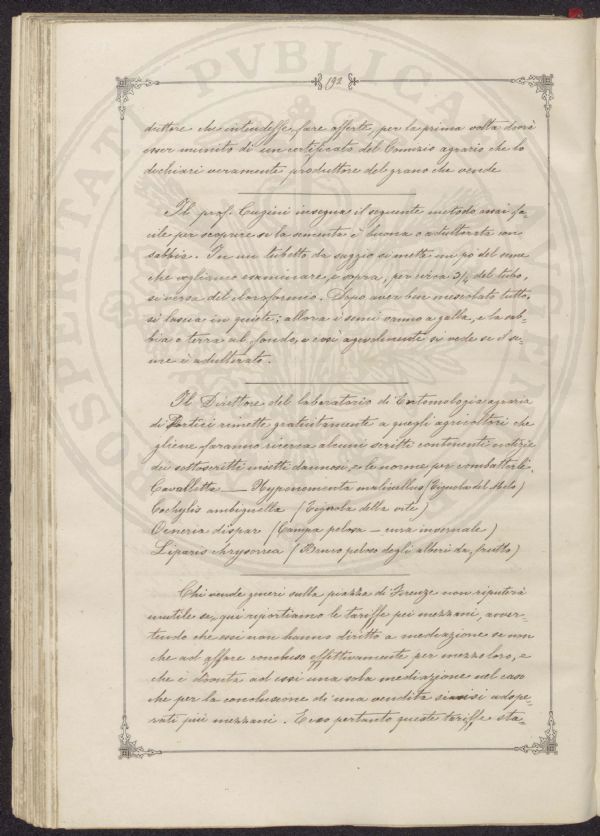 192
duttore che intendesse fare offerte, per la prima volta dovrà
esser munito di un certificato del Comizio agrario che lo
dichiari veramente produttore del grano che vende
Il prof. Cugini insegna il seguente metodo assai fa-
cile per scoprire se la sementa è buona o adulterata con
sabbia. In un tubetto da saggio si mette un pò del seme
che vogliamo esaminare, e sopra, per circa 3/4 del tubo,
si versa del cloroformio. Dopo aver ben mescolato tutto,
si lascia in quiete; allora i semi vanno a galla, e la sab-
bia o terra al fondo, e così agevolmente si vede se il se-
me è adulterato.
Il Direttore del laboratorio di Entomologia agraria
di Portici rimette gratuitamente a quegli agricoltori che
gliene faranno ricerca alcuni scritti contenenti notizie
dei sottoscritti insetti dannosi, e le norme per combatterli.
Cavallette — Hyponomenta malinellus (Tignola del Melo)
Cochylis ambiguella (Tignola della vite)
Ocneria dispar (Campa pelosa – cura invernale)
Liparis chrysorrea (Bruco peloso degli alberi da frutto)
Chi vende generi sulla piazza di Firenze non reputerà
inutile se, qui riportiamo le tariffe pei mezzani, avver-
tendo che essi non hanno diritto a mediazione se non
che ad affare concluso effettivamente per mezzo loro, e
che è dovuta ad essi una sola mediazione nel caso
che per la conclusione di una vendita siansi adope-
rati più mezzani. Ecco pertanto queste tariffe sta-
PROSPERITATI PVBLICAE AVGENDAE